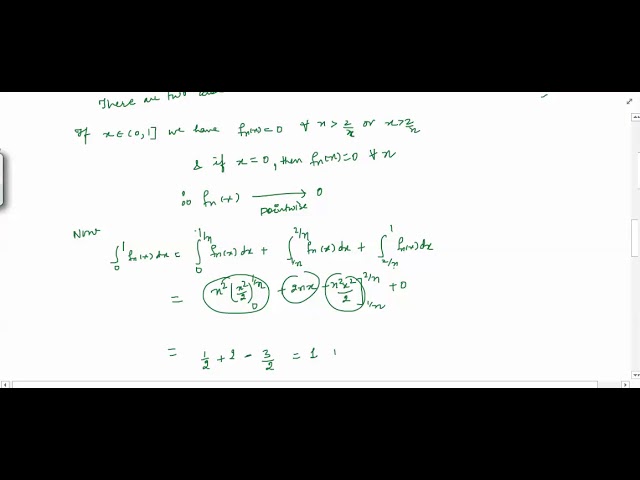 There are two
If x∈(0,1] we have fn(x)=0 ∀ n > 2/x or x>2/n
& if x=0, then fn(x)=0 ∀ n
∴ fn(x) ⟶ 0
pointwise
Now
∫₀¹ fn(x)dx = ∫₀^{1/n} fn(x)dx + ∫_{1/n}^{2/n} fn(x)dx + ∫_{2/n}^{1} fn(x)dx
= n²(x²/2)₀^{1/n} + 2nx - n²x²/2]_{1/n}^{2/n} + 0
= 1/2 + 2 - 3/2 = 1